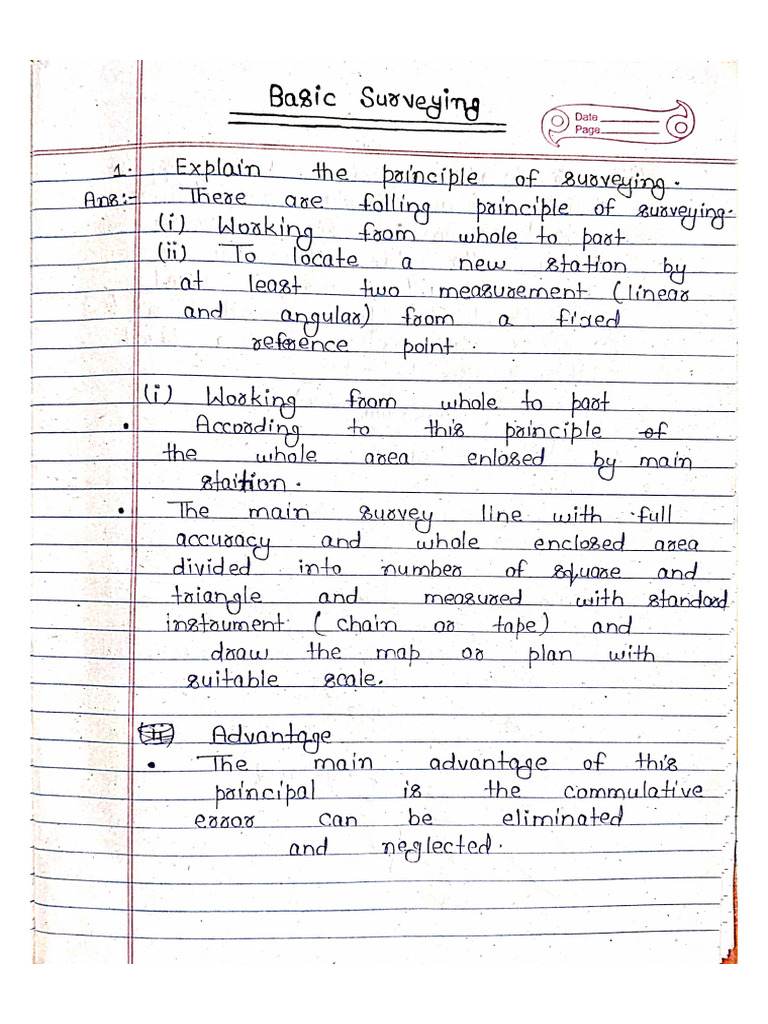 Basic Surveying
Date
Page
1. Explain the principle of surveying.
Ans:- There are folling principle of surveying.
(i) Working from whole to part
(ii) To locate a new station by
at least two measurement (linear
and angular) from a fixed
reference point.
(i) Working from whole to part
• According to this principle of
the whole area enlosed by main
staition.
• The main survey line with full
accuracy and whole enclosed area
divided into number of square and
triangle and measured with standard
instrument (chain or tape) and
draw the map or plan with
suitable scale.
Advantage
• The main advantage of this
principal is the commulative
error can be eliminated
and neglected.